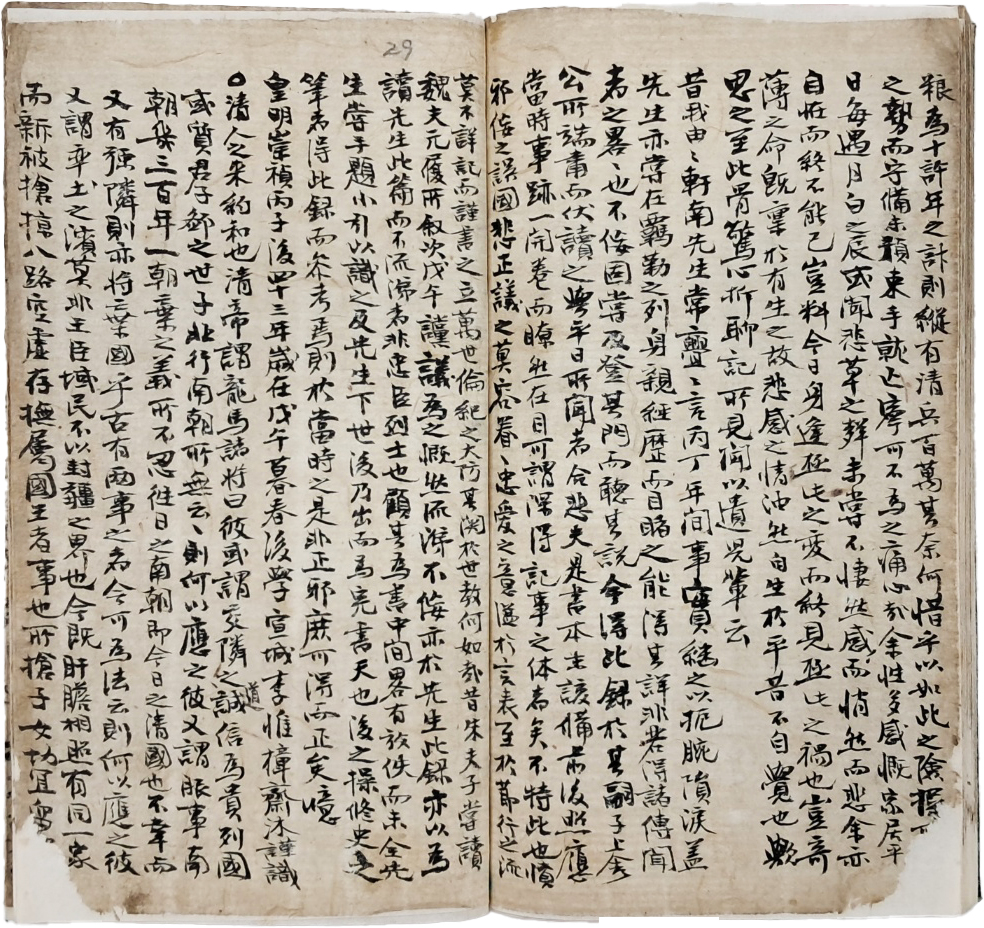 粮爲十許年之計則縱有清兵百萬其奈何惜乎以如此之險據
之勢而守備未顆束手就亡寧可不爲之痛心哉余性多感慨家居平
日每遇月白之辰或聞悲草之群未嘗不悽然感而悄然而悲余亦
自恠而終不能已豈料今日身逢極此之變而終見極此之禍也豈奇
薄之命旣稟於有生之故悲感之情油然自生於平昔不自覺也歟
思之至此骨驚心折聊記所見聞以遺児輩云
昔我由由軒南先生常亹亹言丙丁年間事實繼之以扼腕隕淚盖
先生亦嘗在羈勒之列身親經歷而目睹之能得其詳非若得諸傳聞
者之畧畧也不侫固嘗及登其門而聽其說今得此錄於其嗣子上舍
公所端肅而伏讀之與平日所聞者合悲夫是書本主該備前後照應
當時事跡一開卷而瞭然在目可謂深得記事之体者矣不特此也憤
邪侫之誤國悲正議之莫容眷眷忠愛之意溢於言表至於節行之流
29
莫不詳記而謹書之立萬世倫紀之大防其関於世教何如哉昔朱夫子嘗讀
魏夫元履所叙次戊午讜議爲之慨然流涕不侫亦於先生此錄亦以爲
讀先生此篇而不流涕者非忠臣烈士也顧其爲書中間畧有放佚而未全先
生嘗手題小引以識之及先生下世後乃出而爲完書天也後之操修史之
筆者得此錄而參考焉則於當時之是非正邪庶可得而正矣噫
皇明崇禎丙子後四十三年歲在戊午暮春後學宣城李惟樟齋沐謹識
○清人之來約和也清帝謂龍馬諸將曰彼或謂交隣之道誠信爲貴列國
或質君子卿之世子此行南朝所無云云則何以應之彼又謂服事南
朝幾三百年一朝棄之義所不忍徃日之南朝即今日之清國也不幸而
又有强隣則亦將棄國乎古有兩事之者今可爲法云則何以應之彼
又謂率土之濱莫非王臣域民不以封疆之界也今既肝膽相照有同一家
而新被搶掠八路空虛存撫屬國王者事也所搶子女切宜